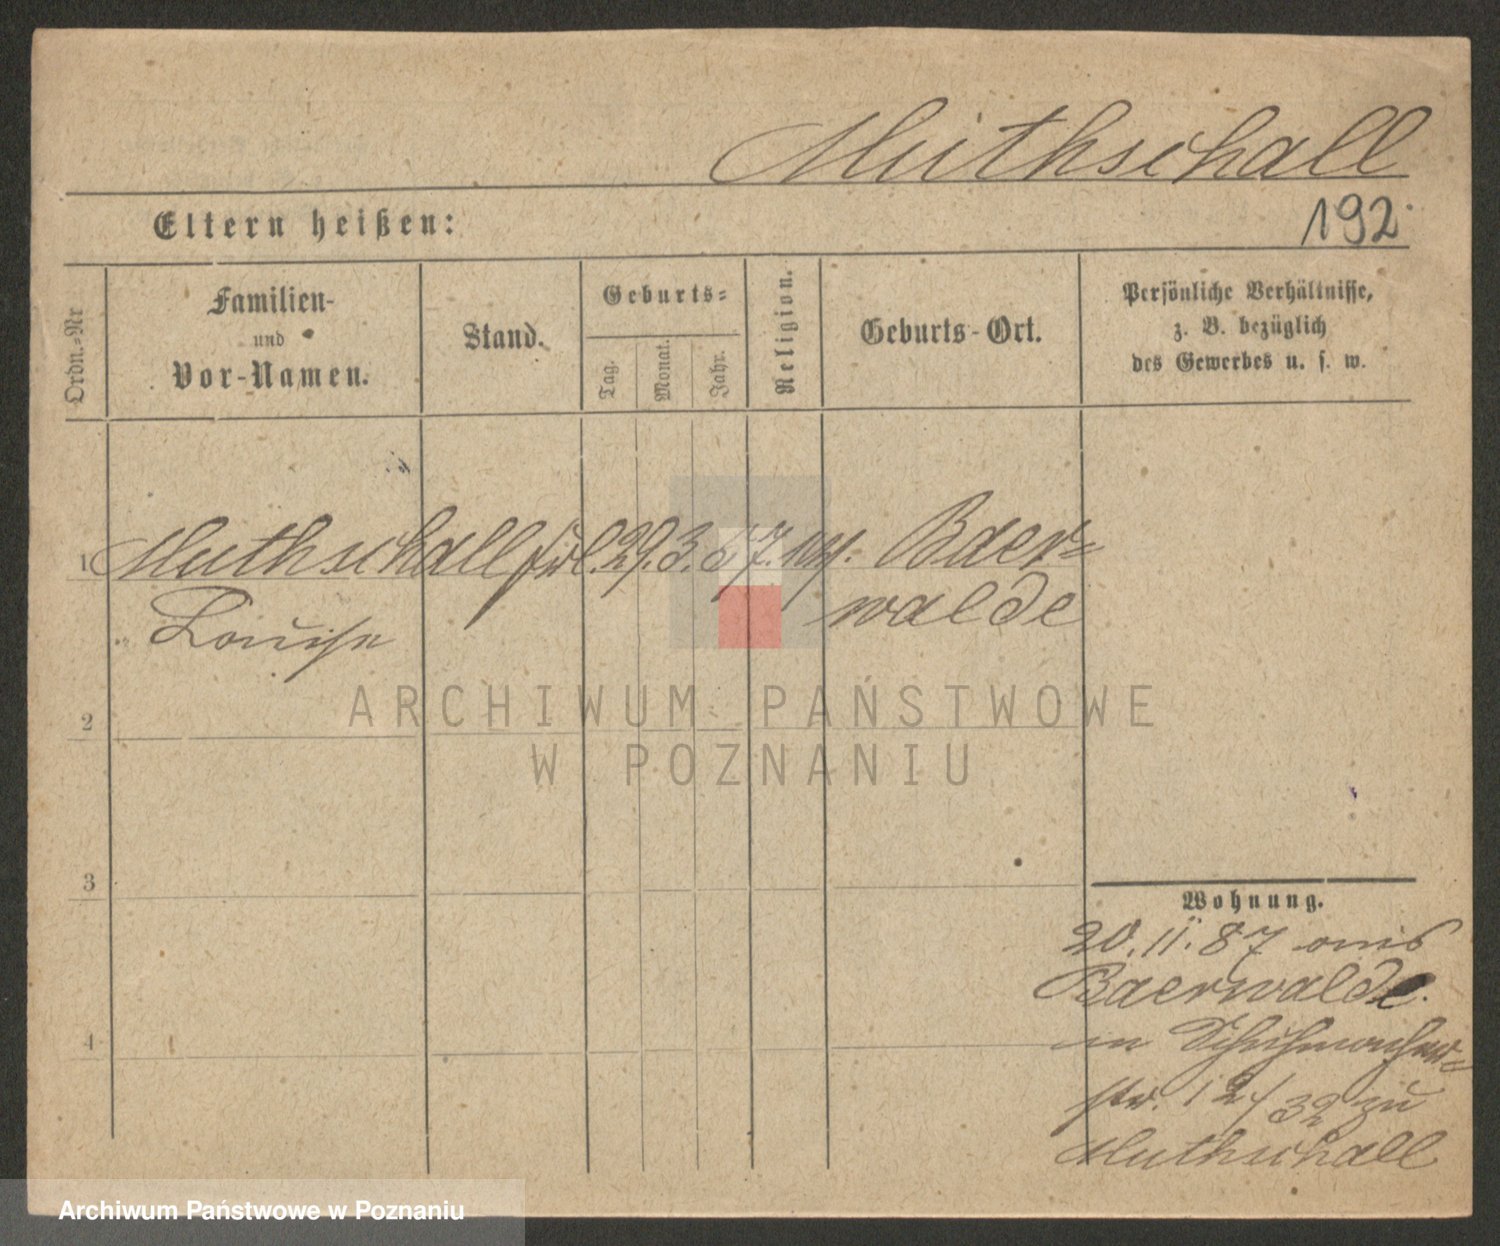 Muthschall
Eltern heißen:
192
Ordn.-Nr
Familien-
und
Vor-Namen.
Stand.
Geburts-
Tag.
Monat.
Jahr.
Religion.
Geburts-Ort.
Persönliche Verhältnisse,
z. B. bezüglich
des Gewerbes u. s. w.
1 Muthschall frl. 29. 3. 67. Baer-
Louise walde
2
3
4
Wohnung.
20. 11. 87 aus
Baerwalde.
in Schuhmacher-
str. 12/32 zu
Muthschall
ARCHIWUM PAŃSTWOWE
W POZNANIU
Archiwum Państwowe w Poznaniu